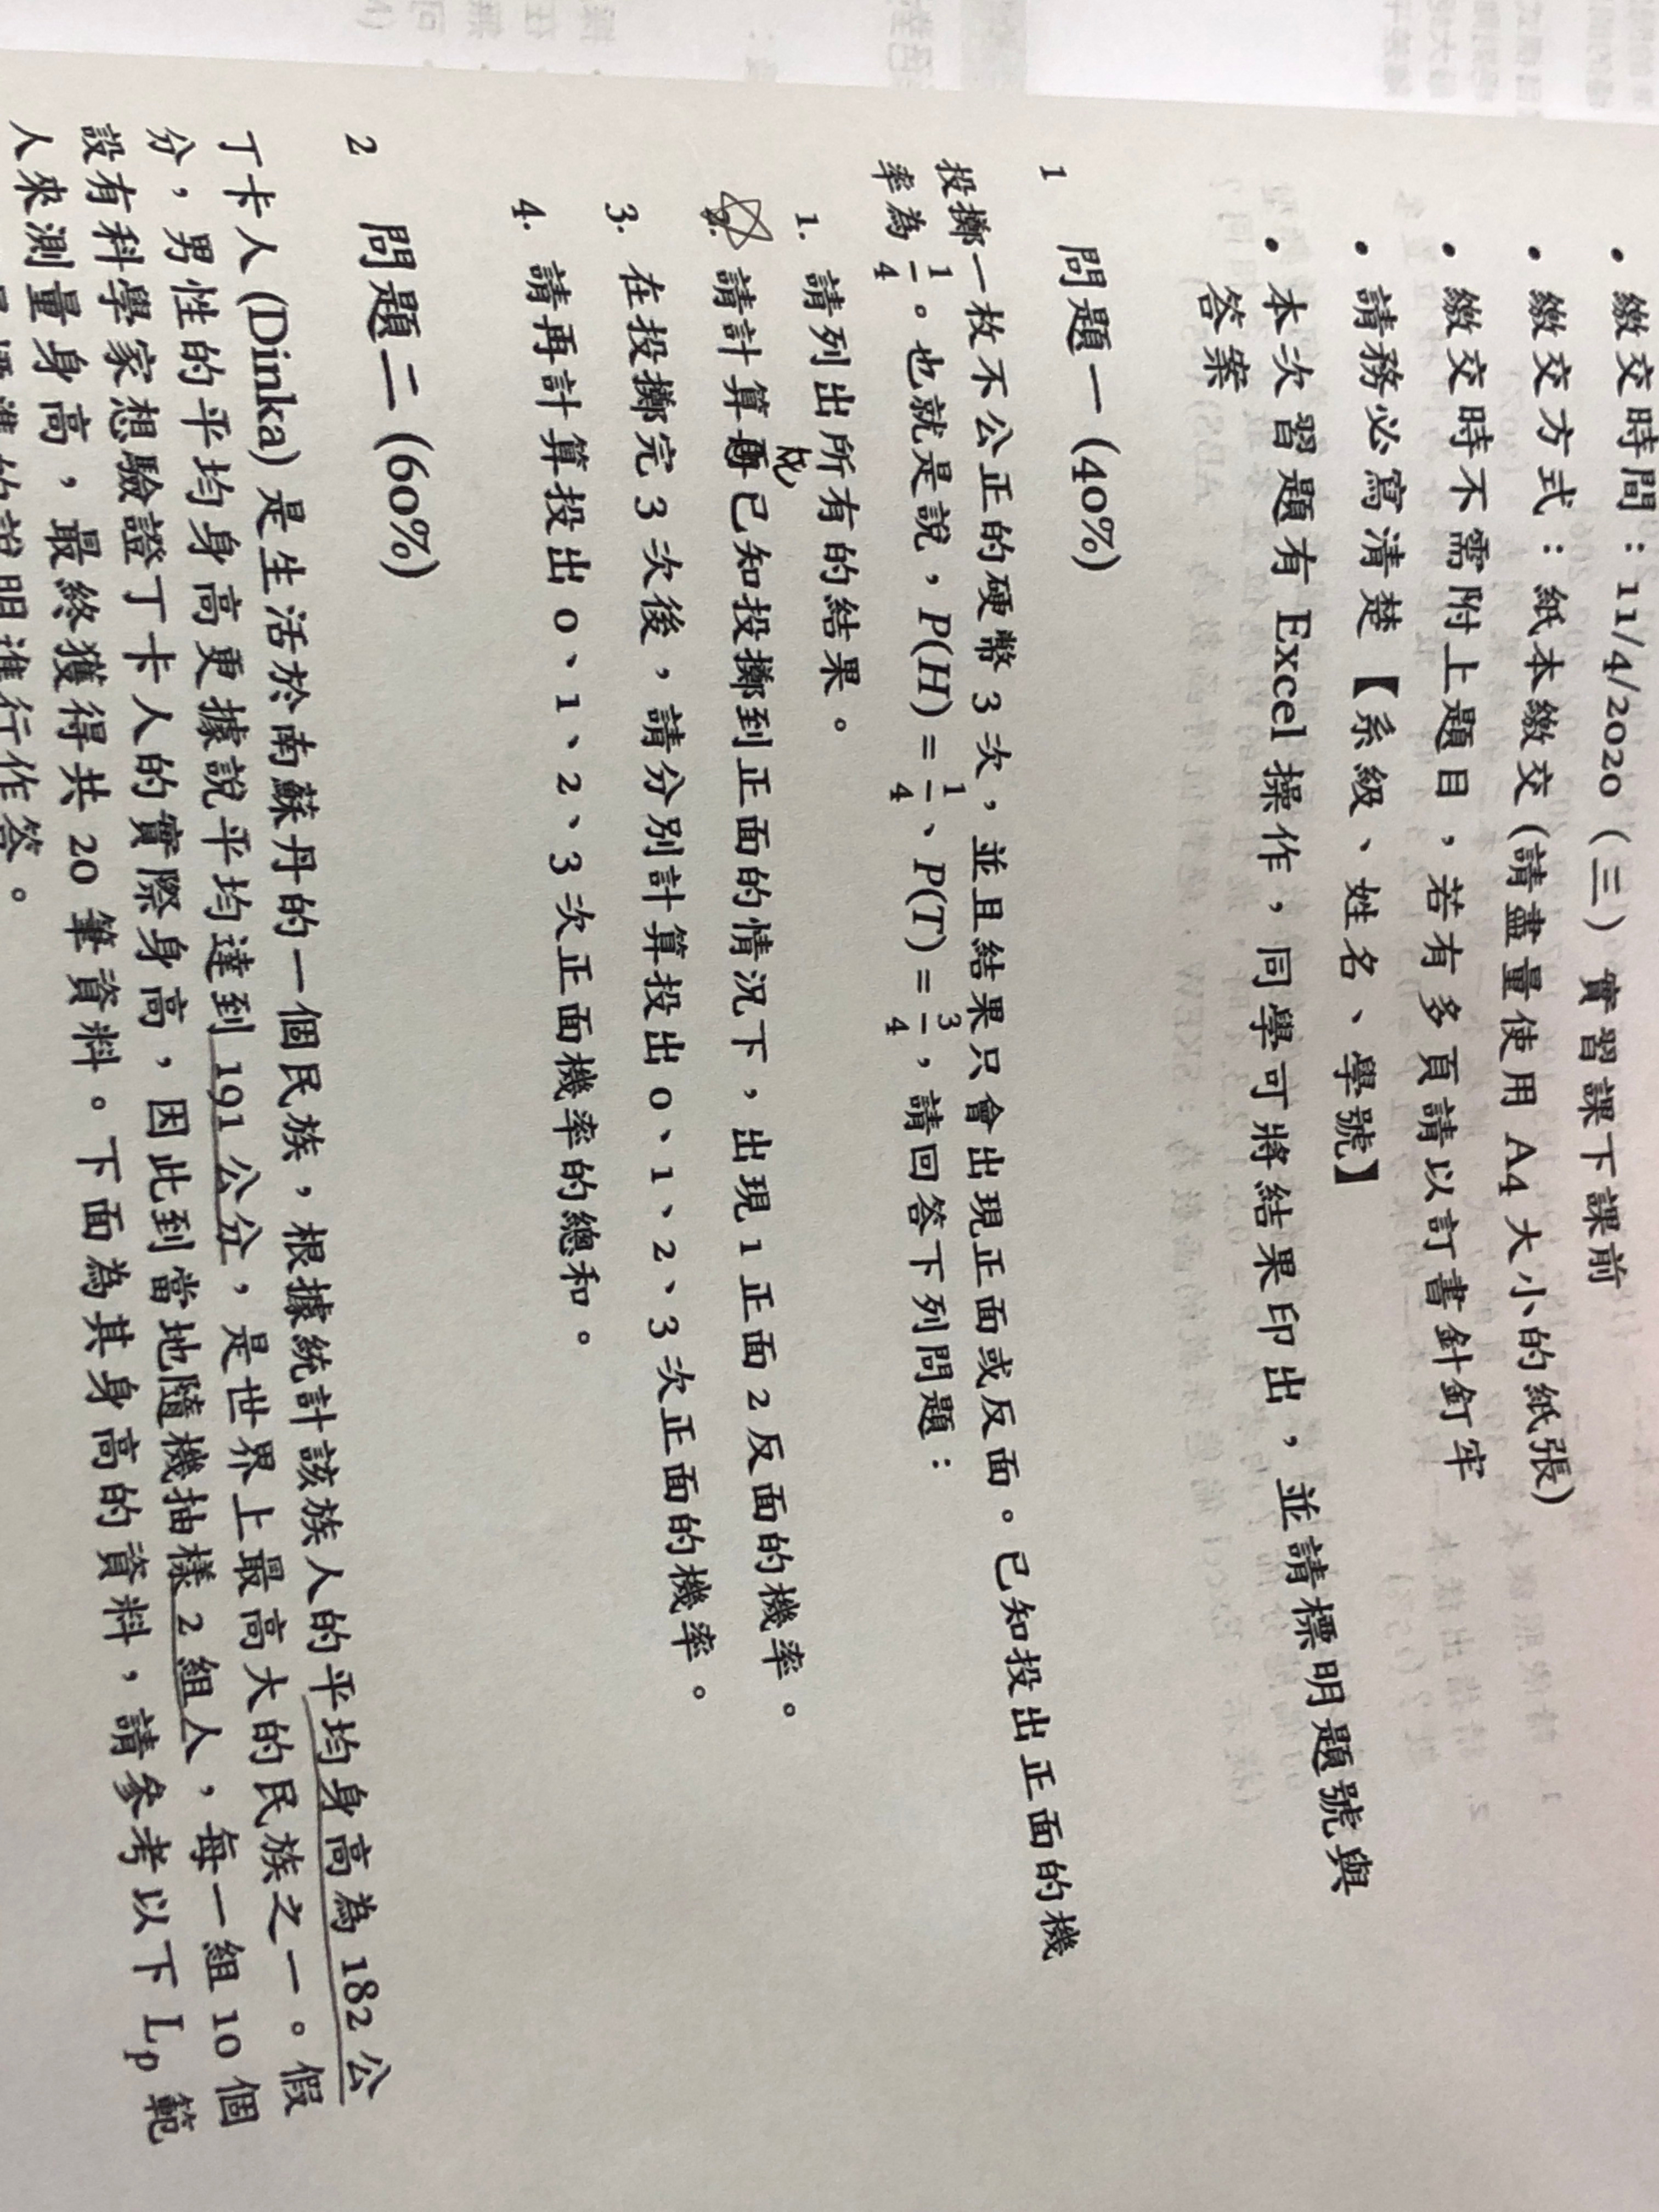 • 繳交時間：11/4/2020（三）實習課下課前
• 繳交方式：紙本繳交 (請盡量使用 A4 大小的紙張)
• 繳交時不需附上題目，若有多頁請以訂書針釘牢
• 請務必寫清楚【系級、姓名、學號】
• 本次習題有 Excel 操作，同學可將結果印出，並請標明題號與
答案
1 問題一 (40%)
投擲一枚不公正的硬幣 3 次，並且結果只會出現正面或反面。已知投出正面的機
率為 1/4。也就是說，P(H) = 1/4、P(T) = 3/4，請回答下列問題：
1. 請列出所有的結果。
2. 請計算已知投擲到正面的情況下，出現 1 正面 2 反面的機率。
3. 在投擲完 3 次後，請分別計算投出 0、1、2、3 次正面的機率。
4. 請再計算投出 0、1、2、3 次正面機率的總和。
2 問題二 (60%)
丁卡人 (Dinka) 是生活於南蘇丹的一個民族，根據統計該族人的平均身高為 182 公
分，男性的平均身高更據說平均達到 191 公分，是世界上最高大的民族之一。假
設有科學家想驗證丁卡人的實際身高，因此到當地隨機抽樣 2 組人，每一組 10 個
人來測量身高，最終獲得共 20 筆資料。下面為其身高的資料，請參考以下 Lp 範
的說明進行作答。